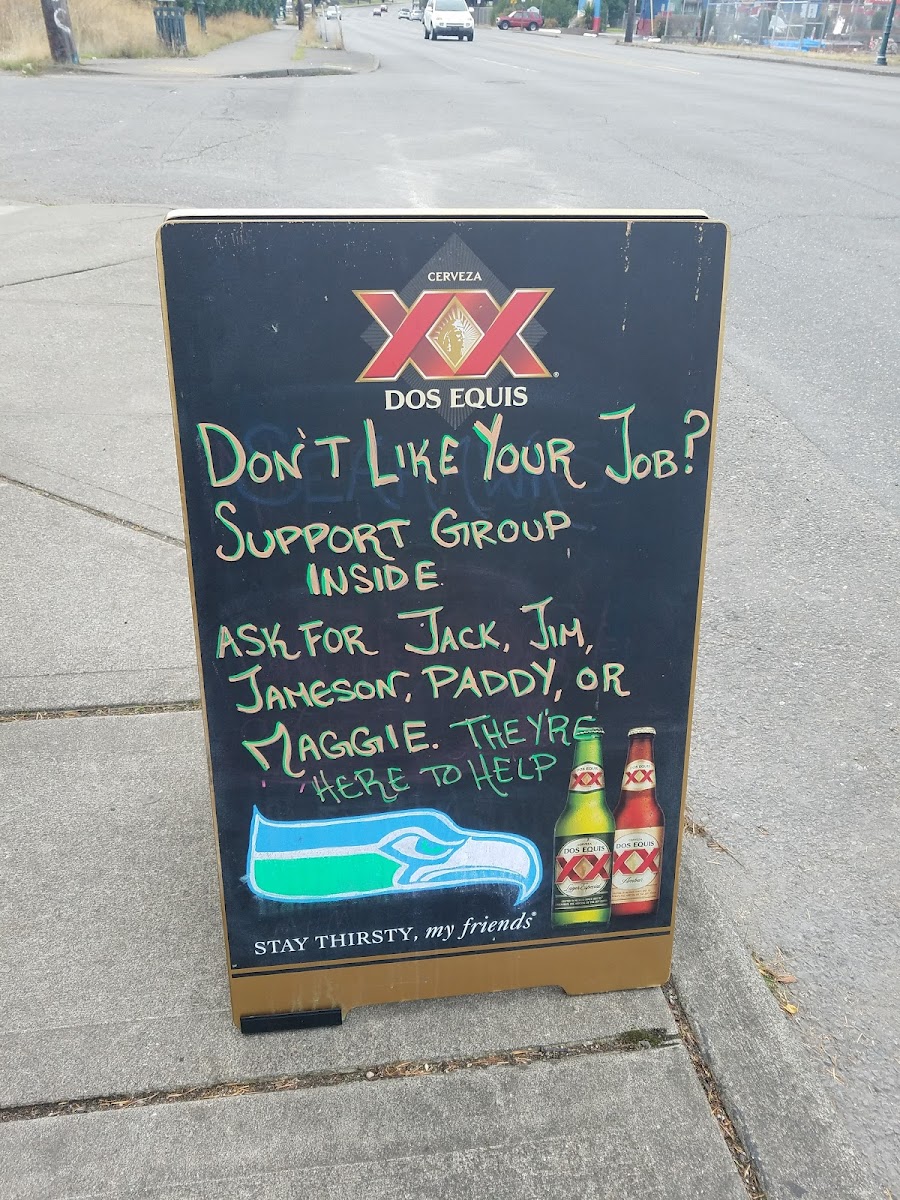 CERVEZA
XX
DOS EQUIS
DON'T LIKE YOUR JOB?
SUPPORT GROUP
INSIDE.
ASK FOR JACK, JIM,
JAMESON, PADDY, OR
MAGGIE. THEY'RE
HERE TO HELP
XX XX
DOS EQUIS DOS EQUIS
XX XX
Lager Especial Ambar
STAY THIRSTY, my friends®